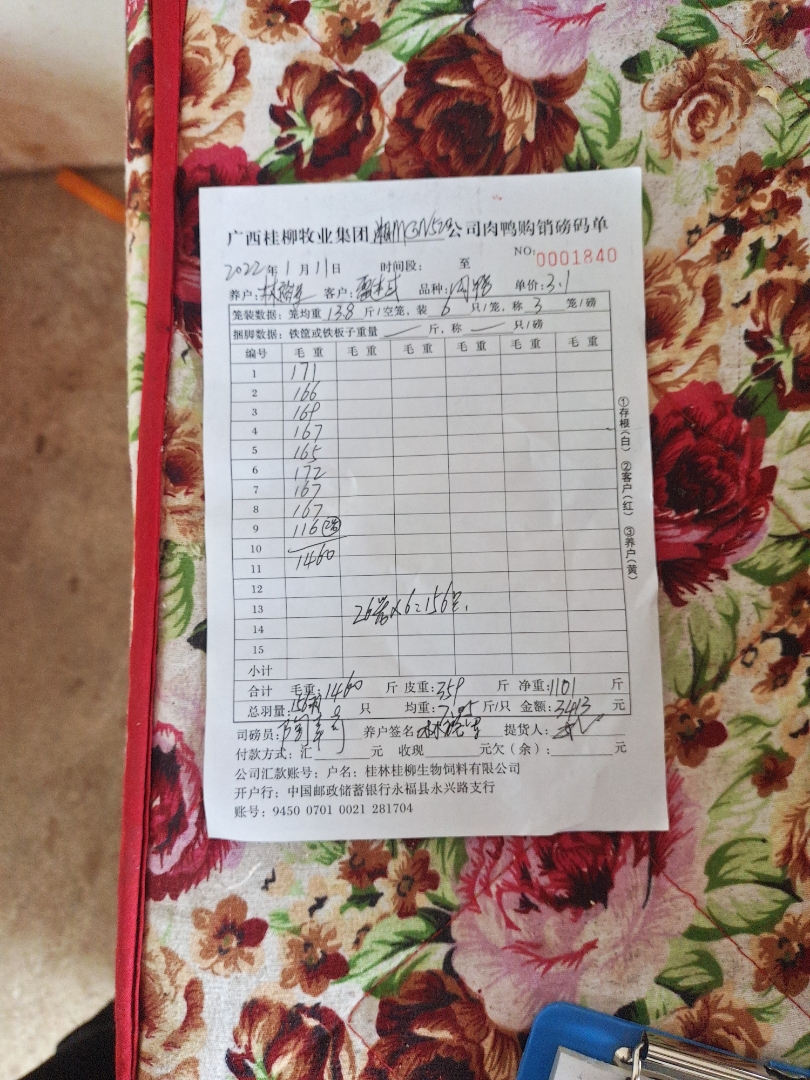 广西桂柳牧业集团湘M3N529公司肉鸭购销磅码单
NO:0001840
2022年1月11日 时间段: 至
养户:林 客户: 品种:肉鸭 单价:3.1
笼装数据:笼均重 13.8 斤/空笼,装 6 只/笼,称 3 笼/磅
捆脚数据:铁筐或铁板子重量 — 斤,称 — 只/磅
编号 毛重 毛重 毛重 毛重 毛重 毛重
1 171
2 166
3 169
4 167
5 165
6 172
7 167
8 167
9 116
10
11 1460
12
13 26笼×6=156只.
14
15
小计
合计 毛重:1460 斤 皮重:359 斤 净重:1101 斤
总羽量:156 只 均重:7.05 斤/只 金额:3413 元
司磅员: 养户签名: 提货人:
付款方式:汇 元 收现 元欠(余): 元
公司汇款账号:户名:桂林桂柳生物饲料有限公司
开户行:中国邮政储蓄银行永福县永兴路支行
账号:9450 0701 0021 281704
①存根(白) ②客户(红) ③养户(黄)